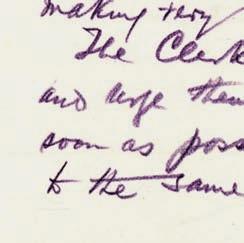 making very
The Clerk
and urge them
soon as poss
to the same